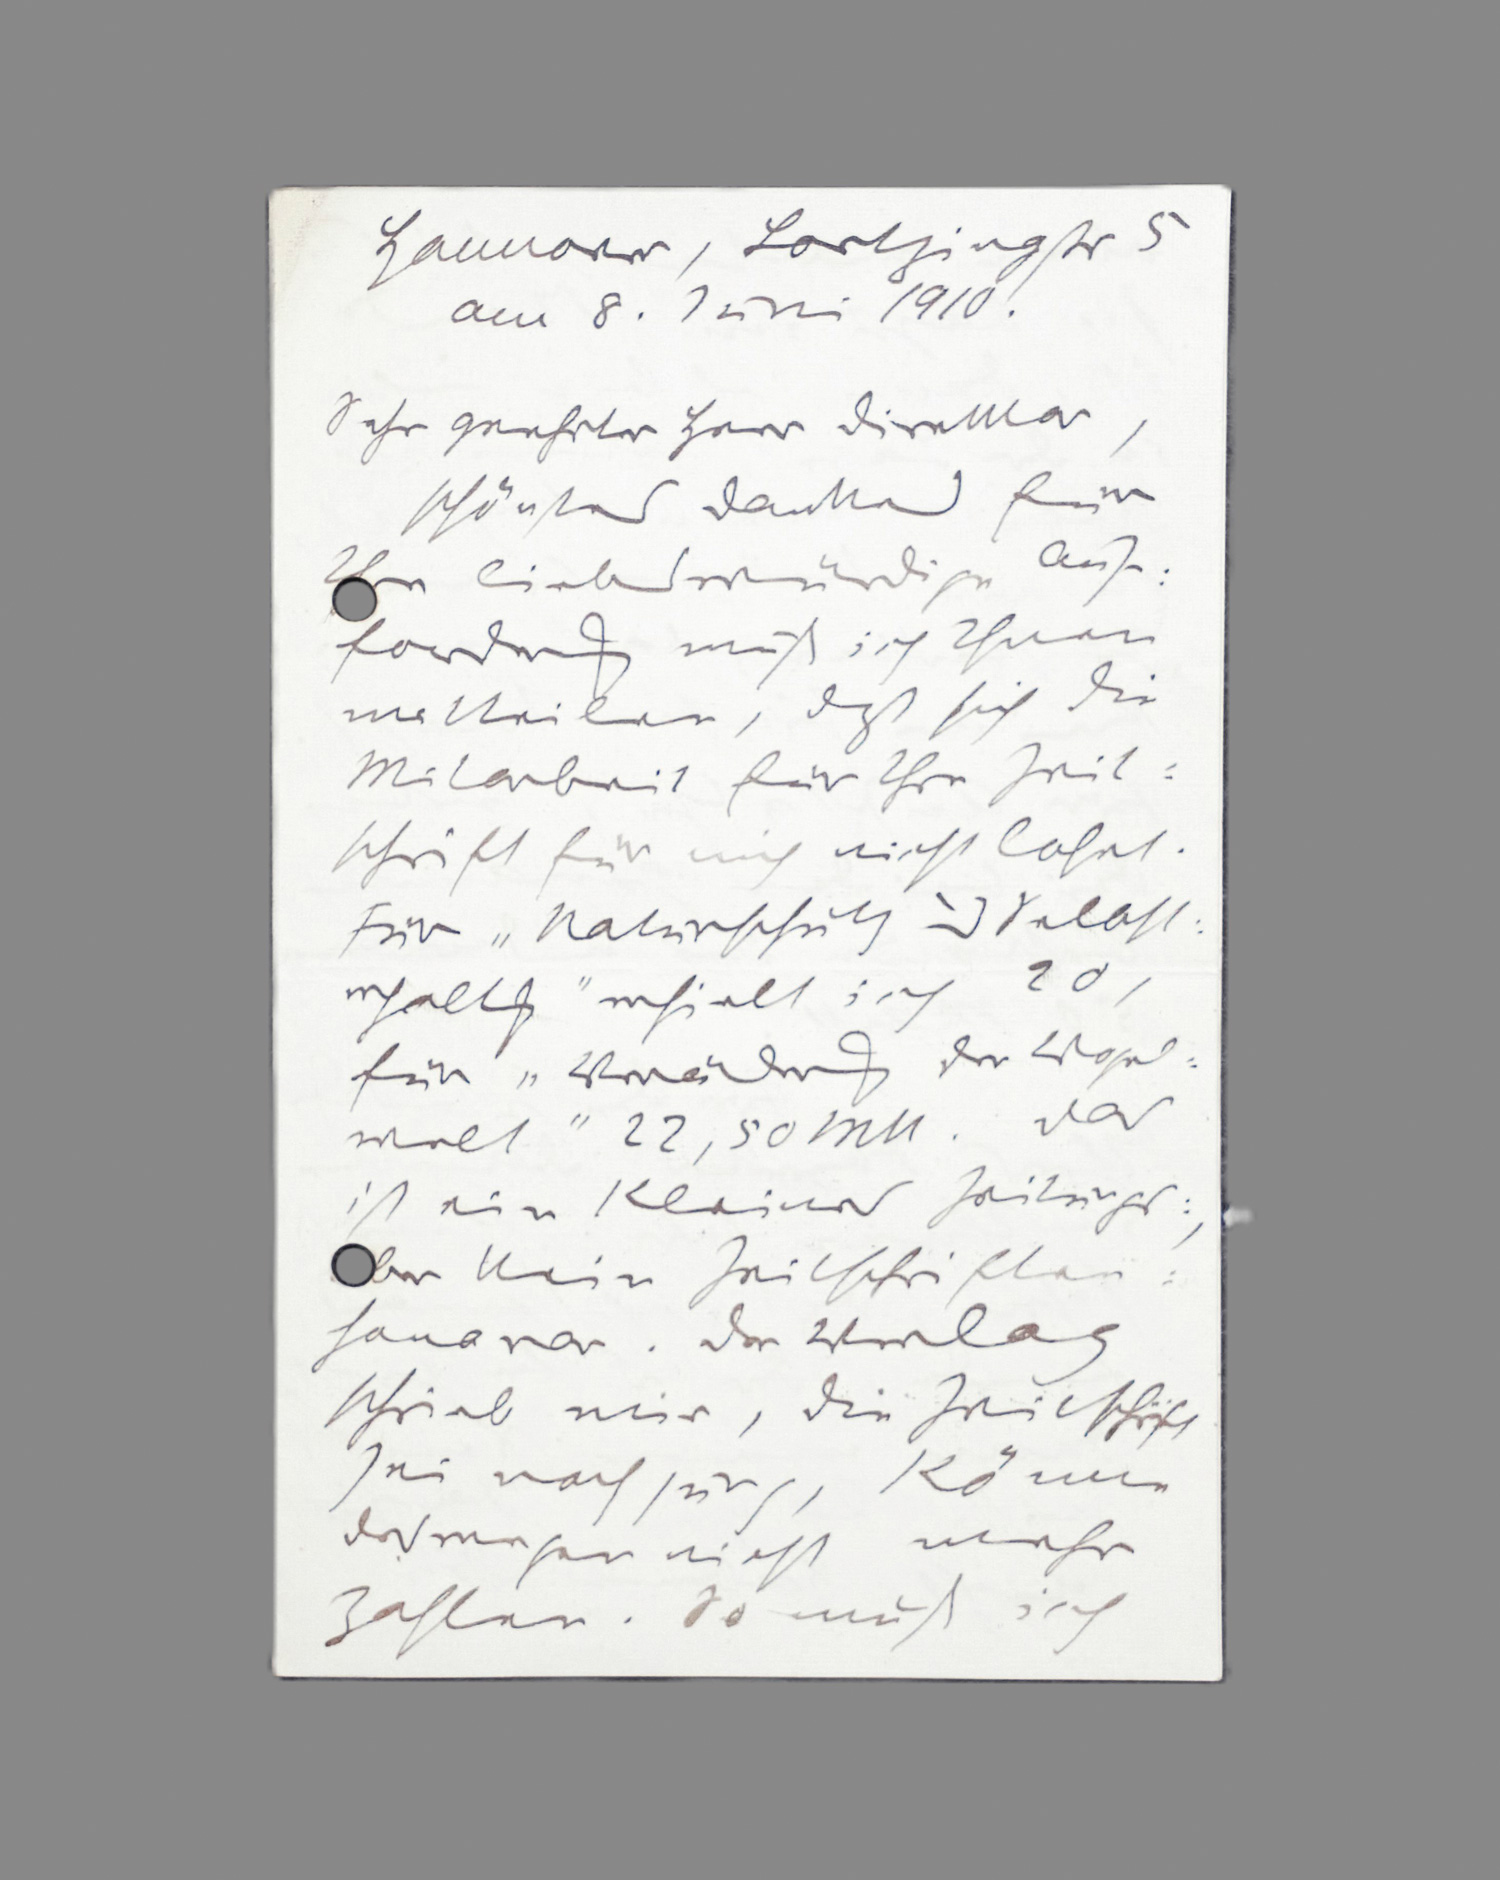 Hannover, Lortzingstr 5
am 8. Juni 1910.
Sehr geehrter Herr Direktor,
schönsten Dank für
Ihre liebenswürdige Auf=
forderung muß ich Ihnen
mitteilen, daß sich die
Mitarbeit für Ihre Zeit=
schrift für mich nicht lohnt.
Für „Naturschutz und Selbst=
erhaltung" erhielt ich 20,
für „Veränderung der Vogel=
welt" 22,50 Mk. Das
ist ein kleines Zeitungs=,
aber kein Zeitschriften=
honorar. Der Verlag
schrieb mir, die Zeitschrift
sei noch jung, könne
deswegen nicht mehr
zahlen. So muß ich